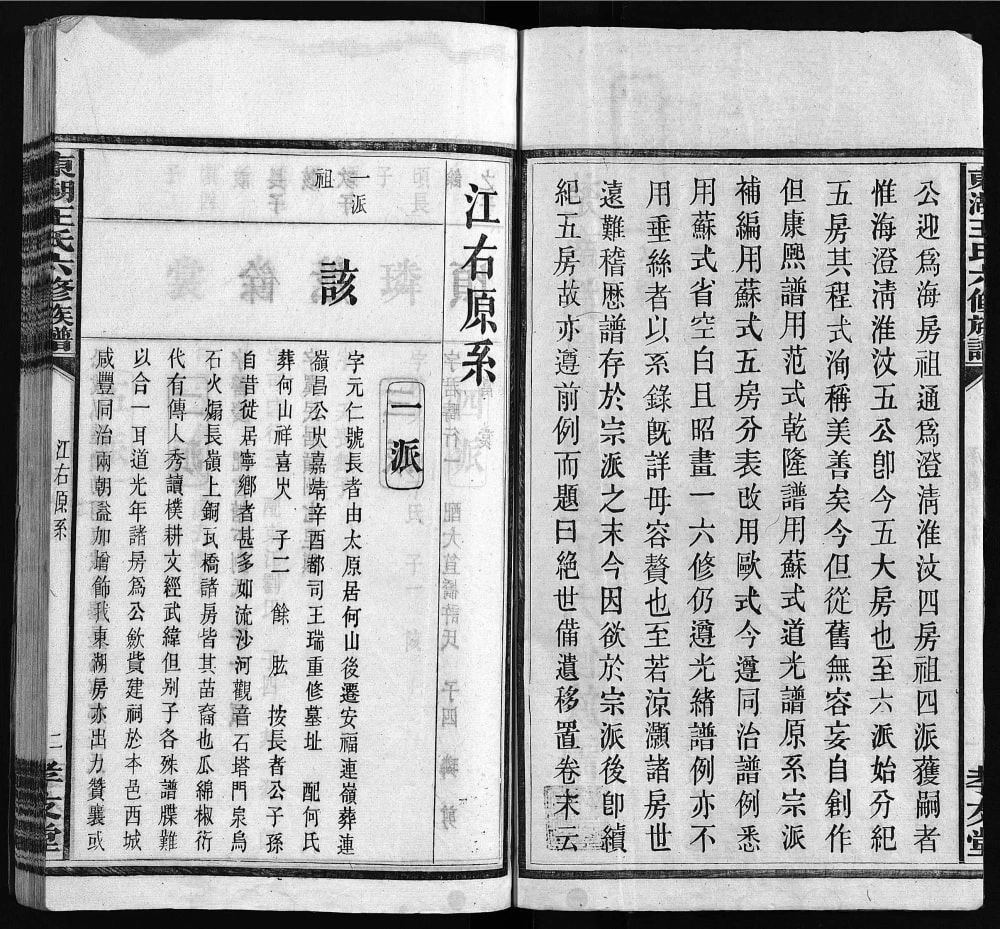 東湖王氏六修族譜
公迎爲海房祖通爲澄淸淮汶四房祖四派獲嗣者
惟海澄淸淮汶五公卽今五大房也至六派始分紀
五房其程式洵稱美善矣今但從舊無容妄自創作
但康熙譜用范式乾隆譜用蘇式道光譜原系宗派
補編用蘇式五房分表改用歐式今遵同治譜例悉
用蘇式省空白且昭畫一六修仍遵光緒譜例亦不
用垂絲者以系錄旣詳毋容贅也至若涼灝諸房世
遠難稽歴譜存於宗派之末今因欲於宗派後卽續
紀五房故亦遵前例而題曰絶世備遺移置卷末云
孝友堂
江右原系
一派
一派
祖
該
字元仁號長者由太原居何山後遷安福連嶺葬連
嶺昌公㞢嘉靖辛酉都司王瑞重修墓址　配何氏
葬何山祥喜㞢　子二　餘　肱　按長者公子孫
自昔徙居寧鄉者甚多如流沙河觀音石塔門泉烏
石火煽長嶺上銅瓦橋諸房皆其苗裔也瓜綿椒衍
代有傳人秀讀樸耕文經武緯但别子各殊譜牒難
以合一耳道光年諸房爲公歛貲建祠於本邑西城
咸豐同治兩朝謚加增飾我東湖房亦出力贊襄或
東湖王氏六修族譜
江右原系
二
孝友堂